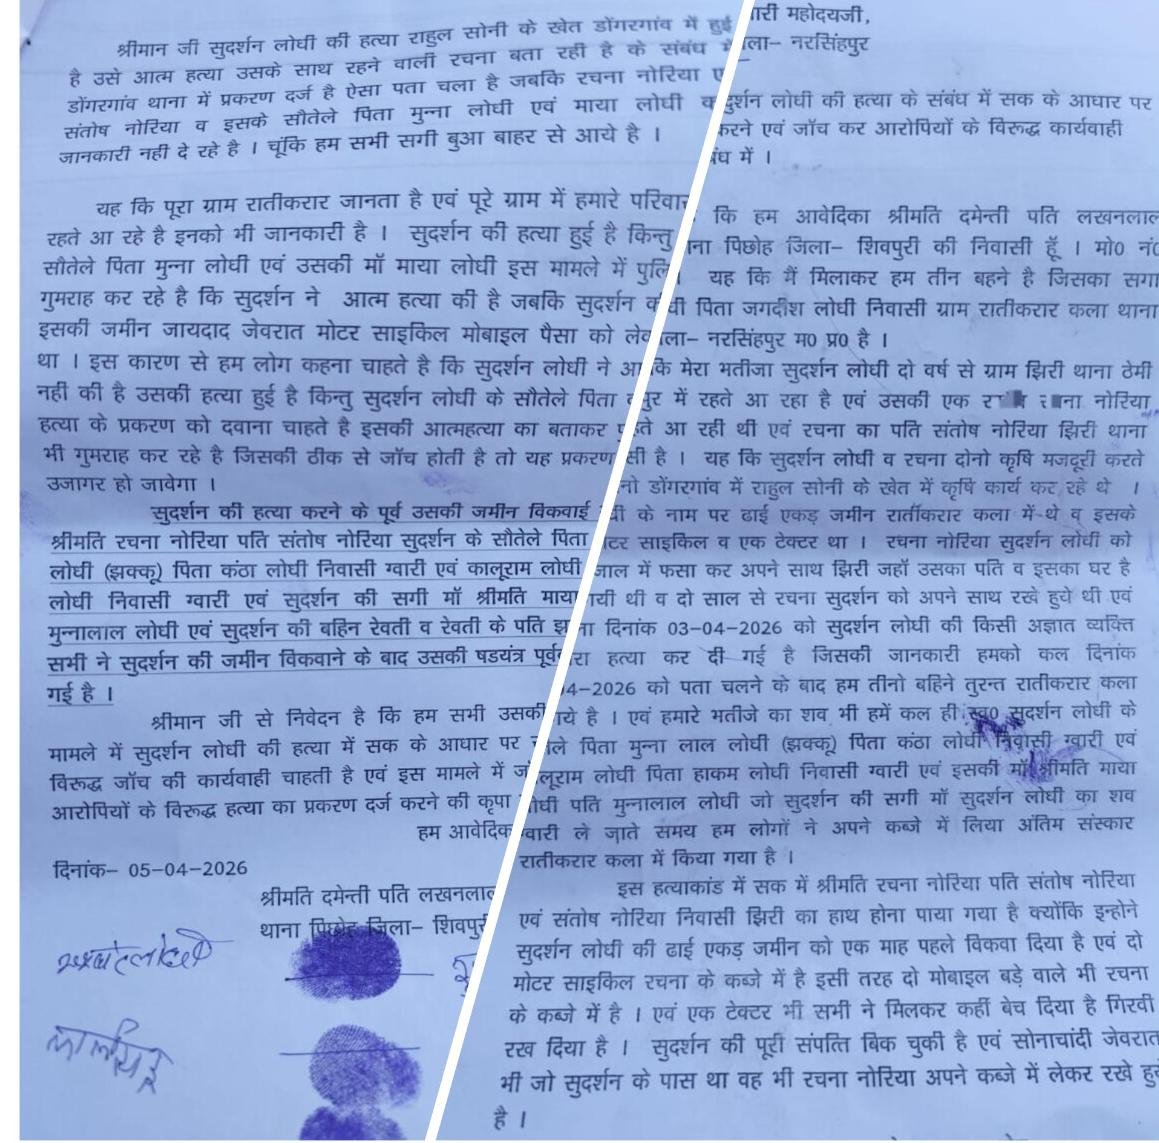 श्रीमान जी सुदर्शन लोधी की हत्या राहुल सोनी के खेत डोंगरगांव में हुई
है उसे आत्म हत्या उसके साथ रहने वाली रचना बता रही है के संबंध में
डोंगरगांव थाना में प्रकरण दर्ज है ऐसा पता चला है जबकि रचना नोरिया
संतोष नोरिया व इसके सौतेले पिता मुन्ना लोधी एवं माया लोधी
जानकारी नही दे रहे है । चूंकि हम सभी सगी बुआ बाहर से आये है ।
यह कि पूरा ग्राम रातीकरार जानता है एवं पूरे ग्राम में हमारे परिवार
रहते आ रहे है इनको भी जानकारी है । सुदर्शन की हत्या हुई है किन्तु
सौतेले पिता मुन्ना लोधी एवं उसकी मॉ माया लोधी इस मामले में पुलि
गुमराह कर रहे है कि सुदर्शन ने आत्म हत्या की है जबकि सुदर्शन
इसकी जमीन जायदाद जेवरात मोटर साइकिल मोबाइल पैसा को ले
था । इस कारण से हम लोग कहना चाहते है कि सुदर्शन लोधी ने आ
नही की है उसकी हत्या हुई है किन्तु सुदर्शन लोधी के सौतेले पिता
हत्या के प्रकरण को दवाना चाहते है इसकी आत्महत्या का बताकर
भी गुमराह कर रहे है जिसकी ठीक से जॉच होती है तो यह प्रकरण
उजागर हो जावेगा ।
सुदर्शन की हत्या करने के पूर्व उसकी जमीन विकवाई
श्रीमति रचना नोरिया पति संतोष नोरिया सुदर्शन के सौतेले पिता
लोधी (झक्कू) पिता कंठा लोधी निवासी ग्वारी एवं कालूराम लोधी
लोधी निवासी ग्वारी एवं सुदर्शन की सगी मॉ श्रीमति माया
मुन्नालाल लोधी एवं सुदर्शन की बहिन रेवती व रेवती के पति
सभी ने सुदर्शन की जमीन विकवाने के बाद उसकी षडयंत्र पूर्व
गई है ।
श्रीमान जी से निवेदन है कि हम सभी उसकी
मामले में सुदर्शन लोधी की हत्या में सक के आधार पर
विरूद्ध जॉच की कार्यवाही चाहती है एवं इस मामले में
आरोपियों के विरूद्ध हत्या का प्रकरण दर्ज करने की कृपा
हम आवेदिक
दिनांक– 05–04–2026
श्रीमति दमेन्ती पति लखनलाल
थाना पिछोह जिला– शिवपुरी
ारी महोदयजी,
ला– नरसिंहपुर
दुर्शन लोधी की हत्या के संबंध में सक के आधार पर
करने एवं जॉच कर आरोपियों के विरूद्ध कार्यवाही
बंध में ।
कि हम आवेदिका श्रीमति दमेन्ती पति लखनलाल
ना पिछोह जिला– शिवपुरी की निवासी हूॅ । मो0 नं0
यह कि मैं मिलाकर हम तीन बहने है जिसका सगा
धी पिता जगदीश लोधी निवासी ग्राम रातीकरार कला थाना
ला– नरसिंहपुर म0 प्र0 है ।
कि मेरा भतीजा सुदर्शन लोधी दो वर्ष से ग्राम झिरी थाना ठेमी
पुर में रहते आ रहा है एवं उसकी एक नोरिया
ते आ रही थी एवं रचना का पति संतोष नोरिया झिरी थाना
सी है । यह कि सुदर्शन लोधी व रचना दोनो कृषि मजदूरी करते
नो डोंगरगांव में राहुल सोनी के खेत में कृषि कार्य कर रहे थे ।
धी के नाम पर ढाई एकड़ जमीन रातीकरार कला में थे व इसके
टर साइकिल व एक टेक्टर था । रचना नोरिया सुदर्शन लोधी को
जाल में फसा कर अपने साथ झिरी जहॉ उसका पति व इसका घर है
गयी थी व दो साल से रचना सुदर्शन को अपने साथ रखे हुये थी एवं
ना दिनांक 03–04–2026 को सुदर्शन लोधी की किसी अज्ञात व्यक्ति
रा हत्या कर दी गई है जिसकी जानकारी हमको कल दिनांक
04–2026 को पता चलने के बाद हम तीनो बहिने तुरन्त रातीकरार कला
ये है । एवं हमारे भतीजे का शव भी हमें कल ही स्व0 सुदर्शन लोधी के
ले पिता मुन्ना लाल लोधी (झक्कू) पिता कंठा लोधी निवासी ग्वारी एवं
लूराम लोधी पिता हाकम लोधी निवासी ग्वारी एवं इसकी मॉ श्रीमति माया
लोधी पति मुन्नालाल लोधी जो सुदर्शन की सगी मॉ सुदर्शन लोधी का शव
ग्वारी ले जाते समय हम लोगों ने अपने कब्जे में लिया अंतिम संस्कार
रातीकरार कला में किया गया है ।
इस हत्याकांड में सक में श्रीमति रचना नोरिया पति संतोष नोरिया
एवं संतोष नोरिया निवासी झिरी का हाथ होना पाया गया है क्योंकि इन्होने
सुदर्शन लोधी की ढाई एकड़ जमीन को एक माह पहले विकवा दिया है एवं दो
मोटर साइकिल रचना के कब्जे में है इसी तरह दो मोबाइल बड़े वाले भी रचना
के कब्जे में है । एवं एक टेक्टर भी सभी ने मिलकर कहीं बेच दिया है गिरवी
रख दिया है । सुदर्शन की पूरी संपत्ति बिक चुकी है एवं सोनाचांदी जेवरात
भी जो सुदर्शन के पास था वह भी रचना नोरिया अपने कब्जे में लेकर रखे हुये
है ।